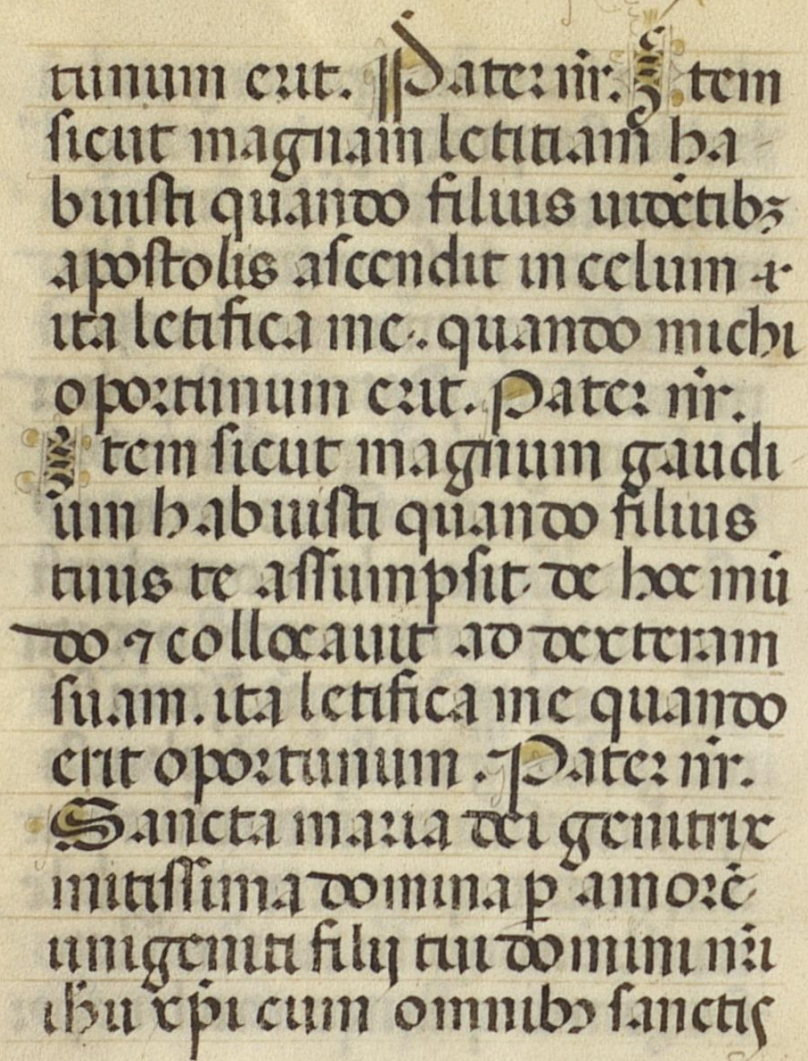 tunum erit. Pater nr̄. Item
sicut magnam letitiam ha
buisti quando filius uidētibꝫ
apostolis ascendit in celum ⁊
ita letifica me. quando michi
oportunum erit. Pater nr̄.
Item sicut magnum gaudi
um habuisti quando filius
tuus te assumpsit de hoc mū
do ⁊ collocauit ad dexteram
suam. ita letifica me quando
erit oportunum. Pater nr̄.
Sancta maria dei genitrix
mitissima domina ꝑ amorē
unigeniti filij tui domini nr̄i
ihū xp̄i cum omnibꝫ sanctis